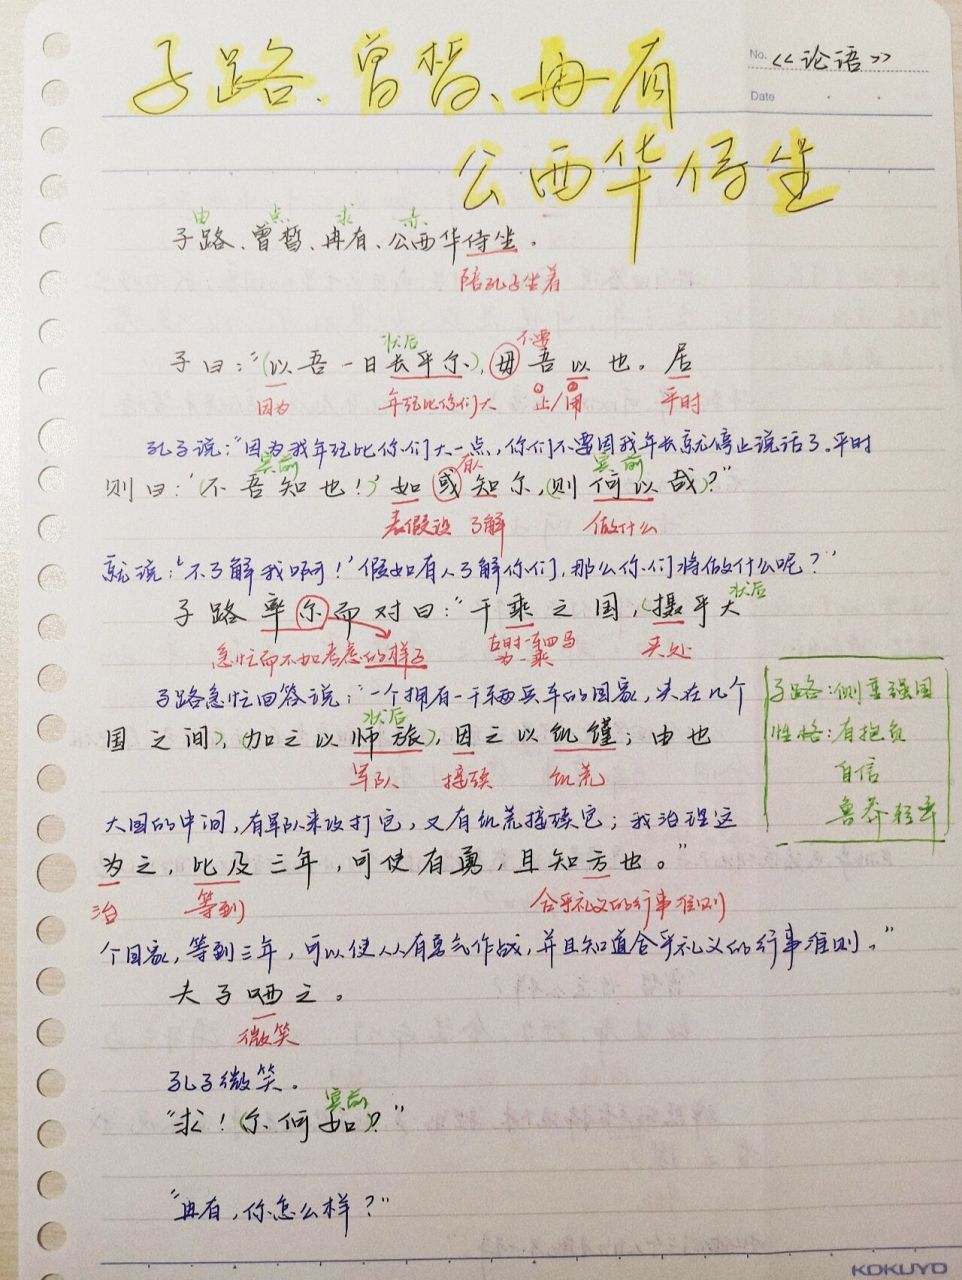 No. 《论语》
Date
子路、曾皙、冉有
公西华侍坐
由 点 求 赤
子路、曾皙、冉有、公西华侍坐。
陪孔子坐着
状后 不要
子曰:“(以吾一日长乎尔),毋吾以也。居
因为 年纪比你们大 止/用 平时
孔子说:“因为我年纪比你们大一点,你们不要因我年长就停止说话了。平时
宾前 有人 宾前
则曰:‘(不吾知也!)’如或知尔,(则何以哉)?”
表假设 了解 做什么
就说:‘不了解我啊!’假如有人了解你们,那么你们将做什么呢?”
状后
子路率尔而对曰:“千乘之国,(摄乎大
急忙而不加考虑的样子 古时一车四马为一乘 夹处
子路急忙回答说:“一个拥有一千辆兵车的国家,夹在几个
状后
国之间),(加之以师旅),因之以饥馑;由也
军队 接续 饥荒
子路:侧重强国
性格:有抱负
自信
鲁莽轻率
大国的中间,有军队来攻打它,又有饥荒接续它;我治理这
为之,比及三年,可使有勇,且知方也。”
治 等到 合乎礼义的行事准则
个国家,等到三年,可以使人人有勇气作战,并且知道合乎礼义的行事准则。”
夫子哂之。
微笑
孔子微笑。
宾前
“求!(尔何如)?”
“冉有,你怎么样?”
KOKUYO